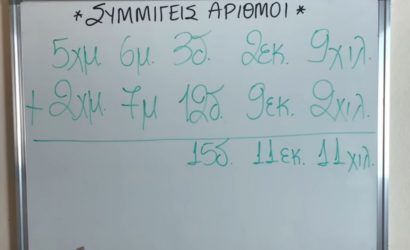 * ΣΥΜΜΙΓΕΙΣ ΑΡΙΘΜΟΙ *
5χμ. 6μ. 3δ. 2εκ. 9χιλ.
+ 2χμ. 7μ 12δ. 9εκ. 2χιλ.
15δ. 11εκ. 11χιλ.